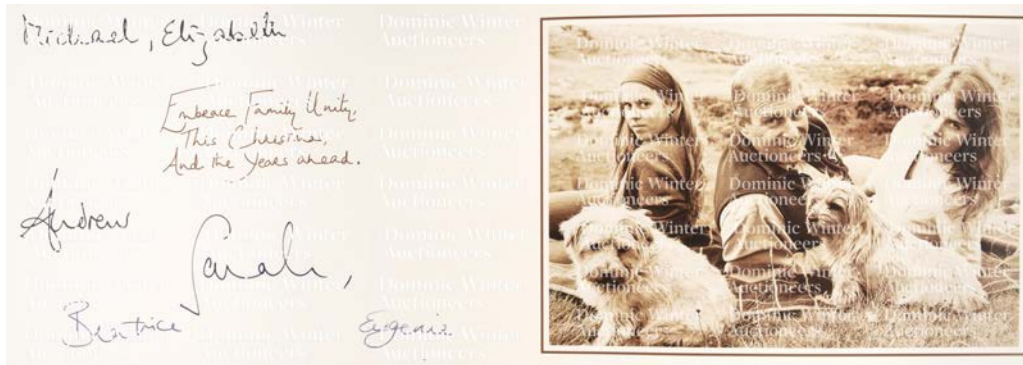 Michael, Elizabeth
Embrace Family Unity.
This Christmas,
And the Years ahead.
Andrew
Sarah,
Beatrice
Eugenie
Dominic Winter
Auctioneers